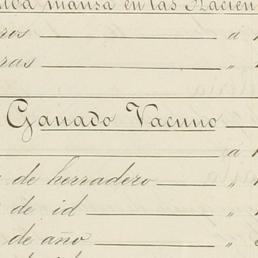 mansa en las Hacien
ros " á
ras "
Ganado Vacuno
á
de herradero "
de id "
de año "